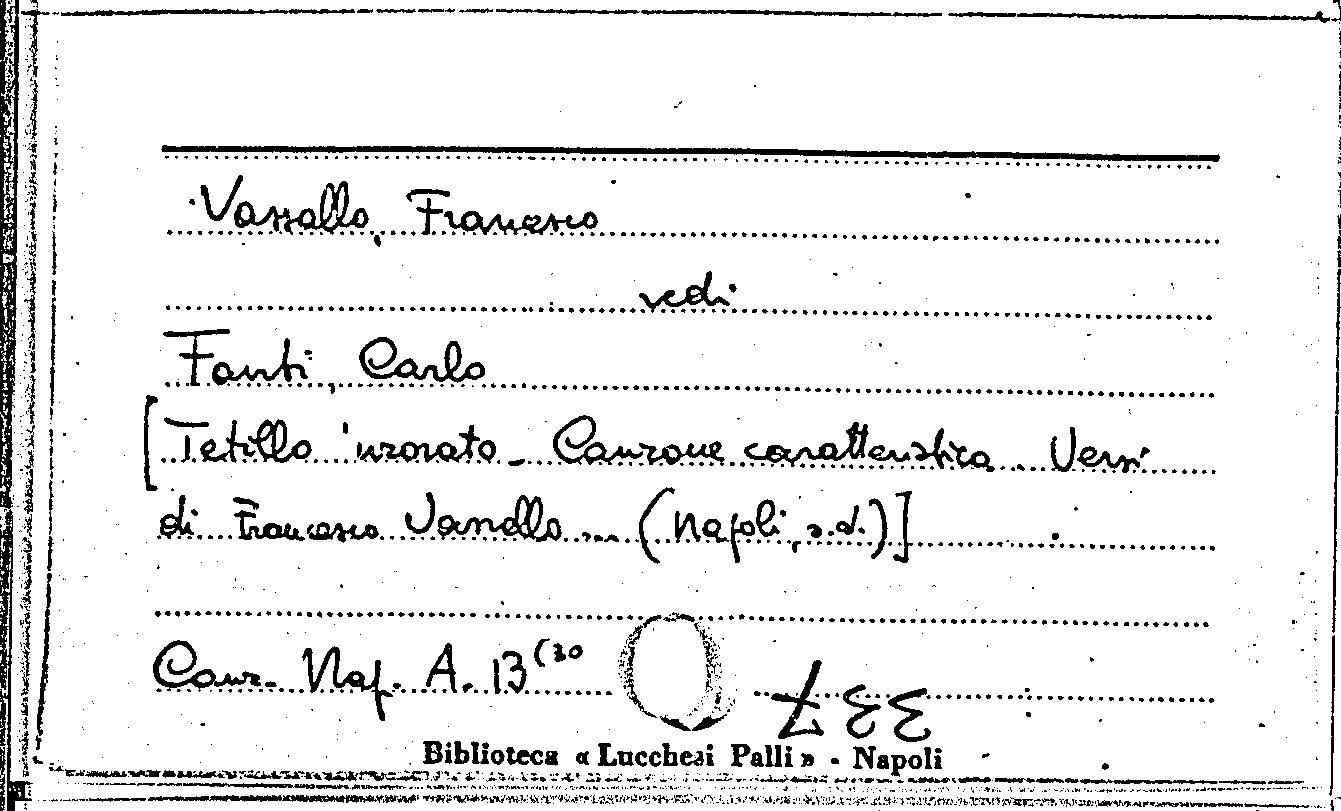 Vassallo, Francesco
vedi
Fanti, Carlo
[Tetillo 'nzorato - Canzone caratteristica. Versi
di Francesco Vassallo ... (Napoli, s.d.)]
Canz. Nap. A. 13 (30
Biblioteca « Lucchesi Palli » - Napoli